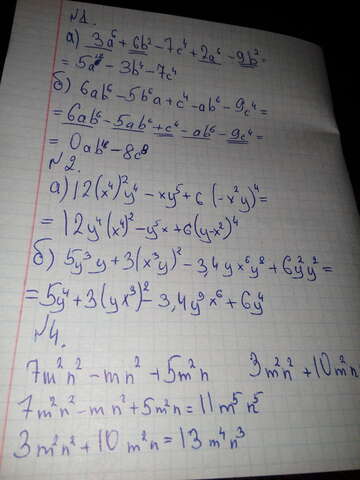 №1.
а) 3a⁶ + 6b² - 7c⁴ + 2a⁶ - 9b² =
= 5a¹² - 3b⁴ - 7c⁴
б) 6ab⁶ - 5b⁶a + c⁴ - ab⁶ - 9c⁴ =
= 6ab⁶ - 5ab⁶ + c⁴ - ab⁶ - 9c⁴ =
= 0ab¹⁸ - 8c⁸
№2.
а) 12(x⁴)²y⁴ - xy⁵ + 6(-x²y)⁴ =
= 12y⁴(x⁴)² - y⁵x + 6(y-x²)⁴
б) 5y³y + 3(x³y)² - 3,4yx⁶y⁸ + 6y²y² =
= 5y⁴ + 3(yx³)² - 3,4y⁹x⁶ + 6y⁴
№4.
7m²n² - mn² + 5m²n 3m²n² + 10m²n
7m²n² - mn² + 5m²n = 11m⁵n⁵
3m²n² + 10m²n = 13m⁴n³